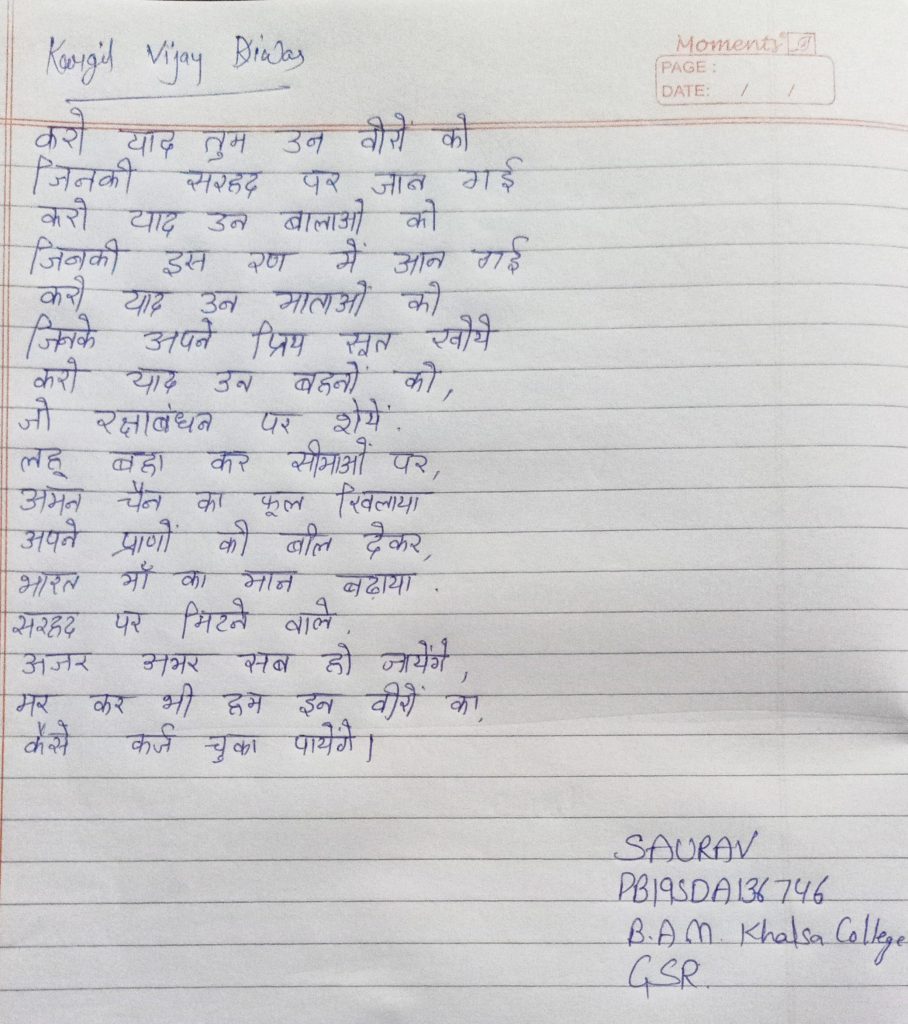 Kargil Vijay Diwas
Moments
PAGE :
DATE: / /
करो याद तुम उन वीरों को
जिनकी सरहद पर जान गई
करो याद उन बालाओ को
जिनकी इस रण में आन गई
करो याद उन माताओं को
जिनके अपने प्रिय सूत खोये
करो याद उन बहनों को,
जो रक्षाबंधन पर रोयें.
लहू बहा कर सीमाओं पर,
अमन चैन का फूल खिलाया
अपने प्राणों की बलि देकर,
भारत माँ का मान बढ़ाया.
सरहद पर मिटने वाले,
अजर अमर सब हो जायेंगे,
मर कर भी हम इन वीरों का,
कैसे कर्ज चुका पायेंगे।
SAURAV
PB19SDA136746
B.A.M. Khalsa College
GSR.